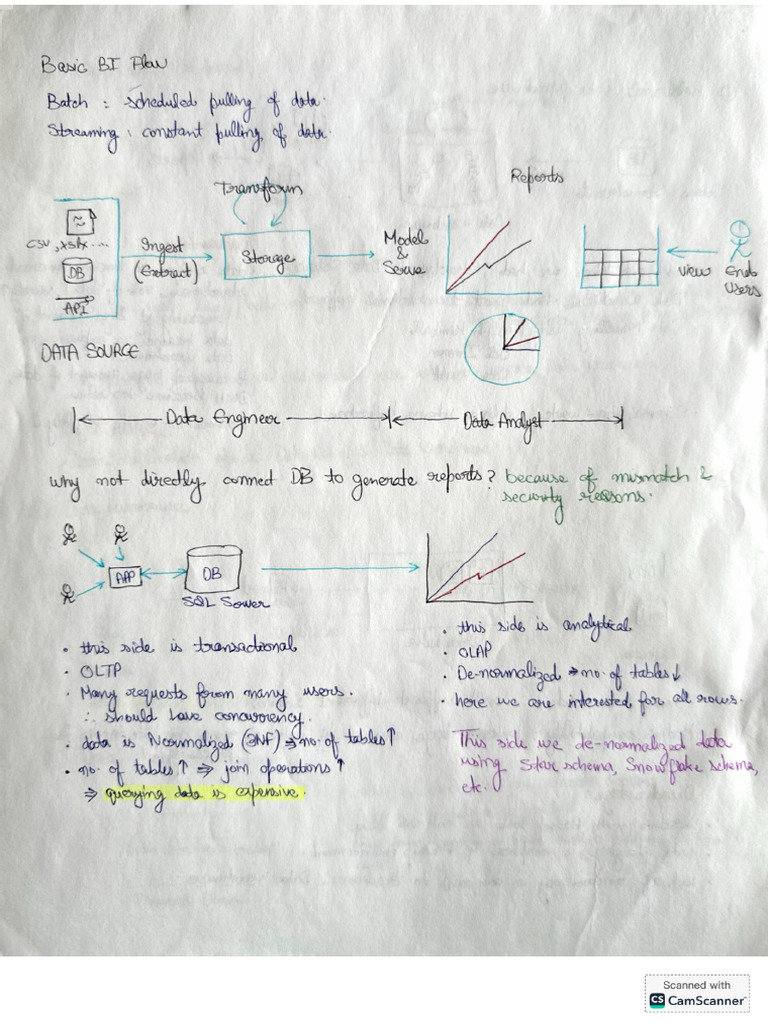 Basic BI Flow
Batch : scheduled pulling of data.
Streaming : constant pulling of data.
Transform
Reports
CSV, xslx ....
DB
API
Ingest
(Extract)
Storage
Model
&
Serve
view
End
Users
DATA SOURCE
Data Engineer
Data Analyst
why not directly connect DB to generate reports? because of mismatch &
security reasons.
APP
DB
SQL Server
• this side is transactional
• OLTP
• Many requests from many users.
∴ should have concurrency.
• data is Normalized (3NF) ⇒ no. of tables ↑
• no. of tables ↑ ⇒ join operations ↑
⇒ querying data is expensive.
• this side is analytical
• OLAP
• De-normalized ⇒ no. of tables ↓
• here we are interested for all rows.
This side we de-normalized data
using Star schema, Snowflake schema,
etc.
Scanned with
CS CamScanner